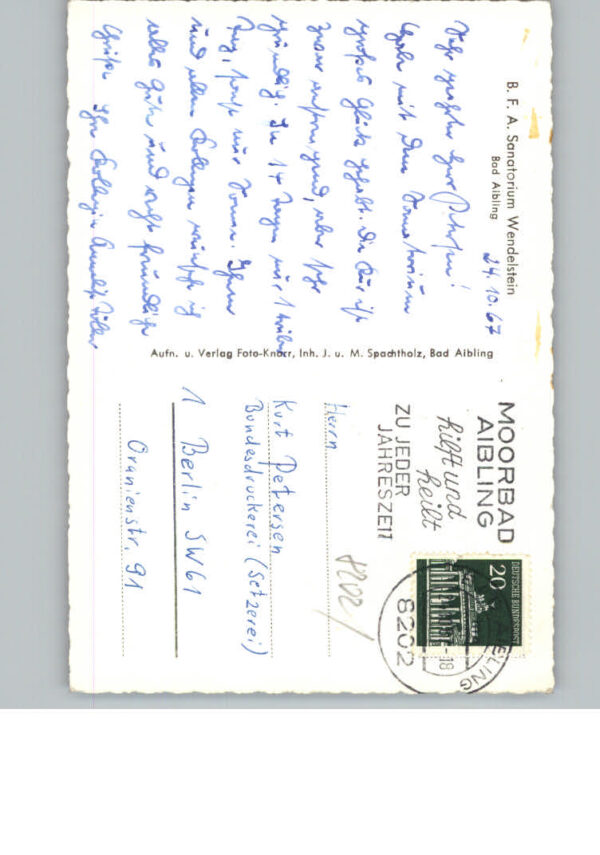 B. F. A. Sanatorium Wendelstein
Bad Aibling
24.10.67
Sehr geehrter Herr Petersen!
Habe mit dem Sanatorium
großes Glück gehabt. Die Kur ist
zwar anstrengend, aber sehr
gründlich. In 14 Tagen nur 1 trüber
Tag, sonst nur Sonne. Ihnen
und allen Kollegen wünsche ich
alles Gute und recht freundliche
Grüße Ihre Kollegin
Aufn. u. Verlag Foto-Knorr, Inh. J. u. M. Spachtholz, Bad Aibling
MOORBAD
AIBLING
hilft und
heilt
ZU JEDER
JAHRESZEIT
DEUTSCHE BUNDESPOST
20
-18
8202
8202/
Herrn
Kurt Petersen
Bundesdruckerei (Setzerei)
1 Berlin SW61
Oranienstr. 91